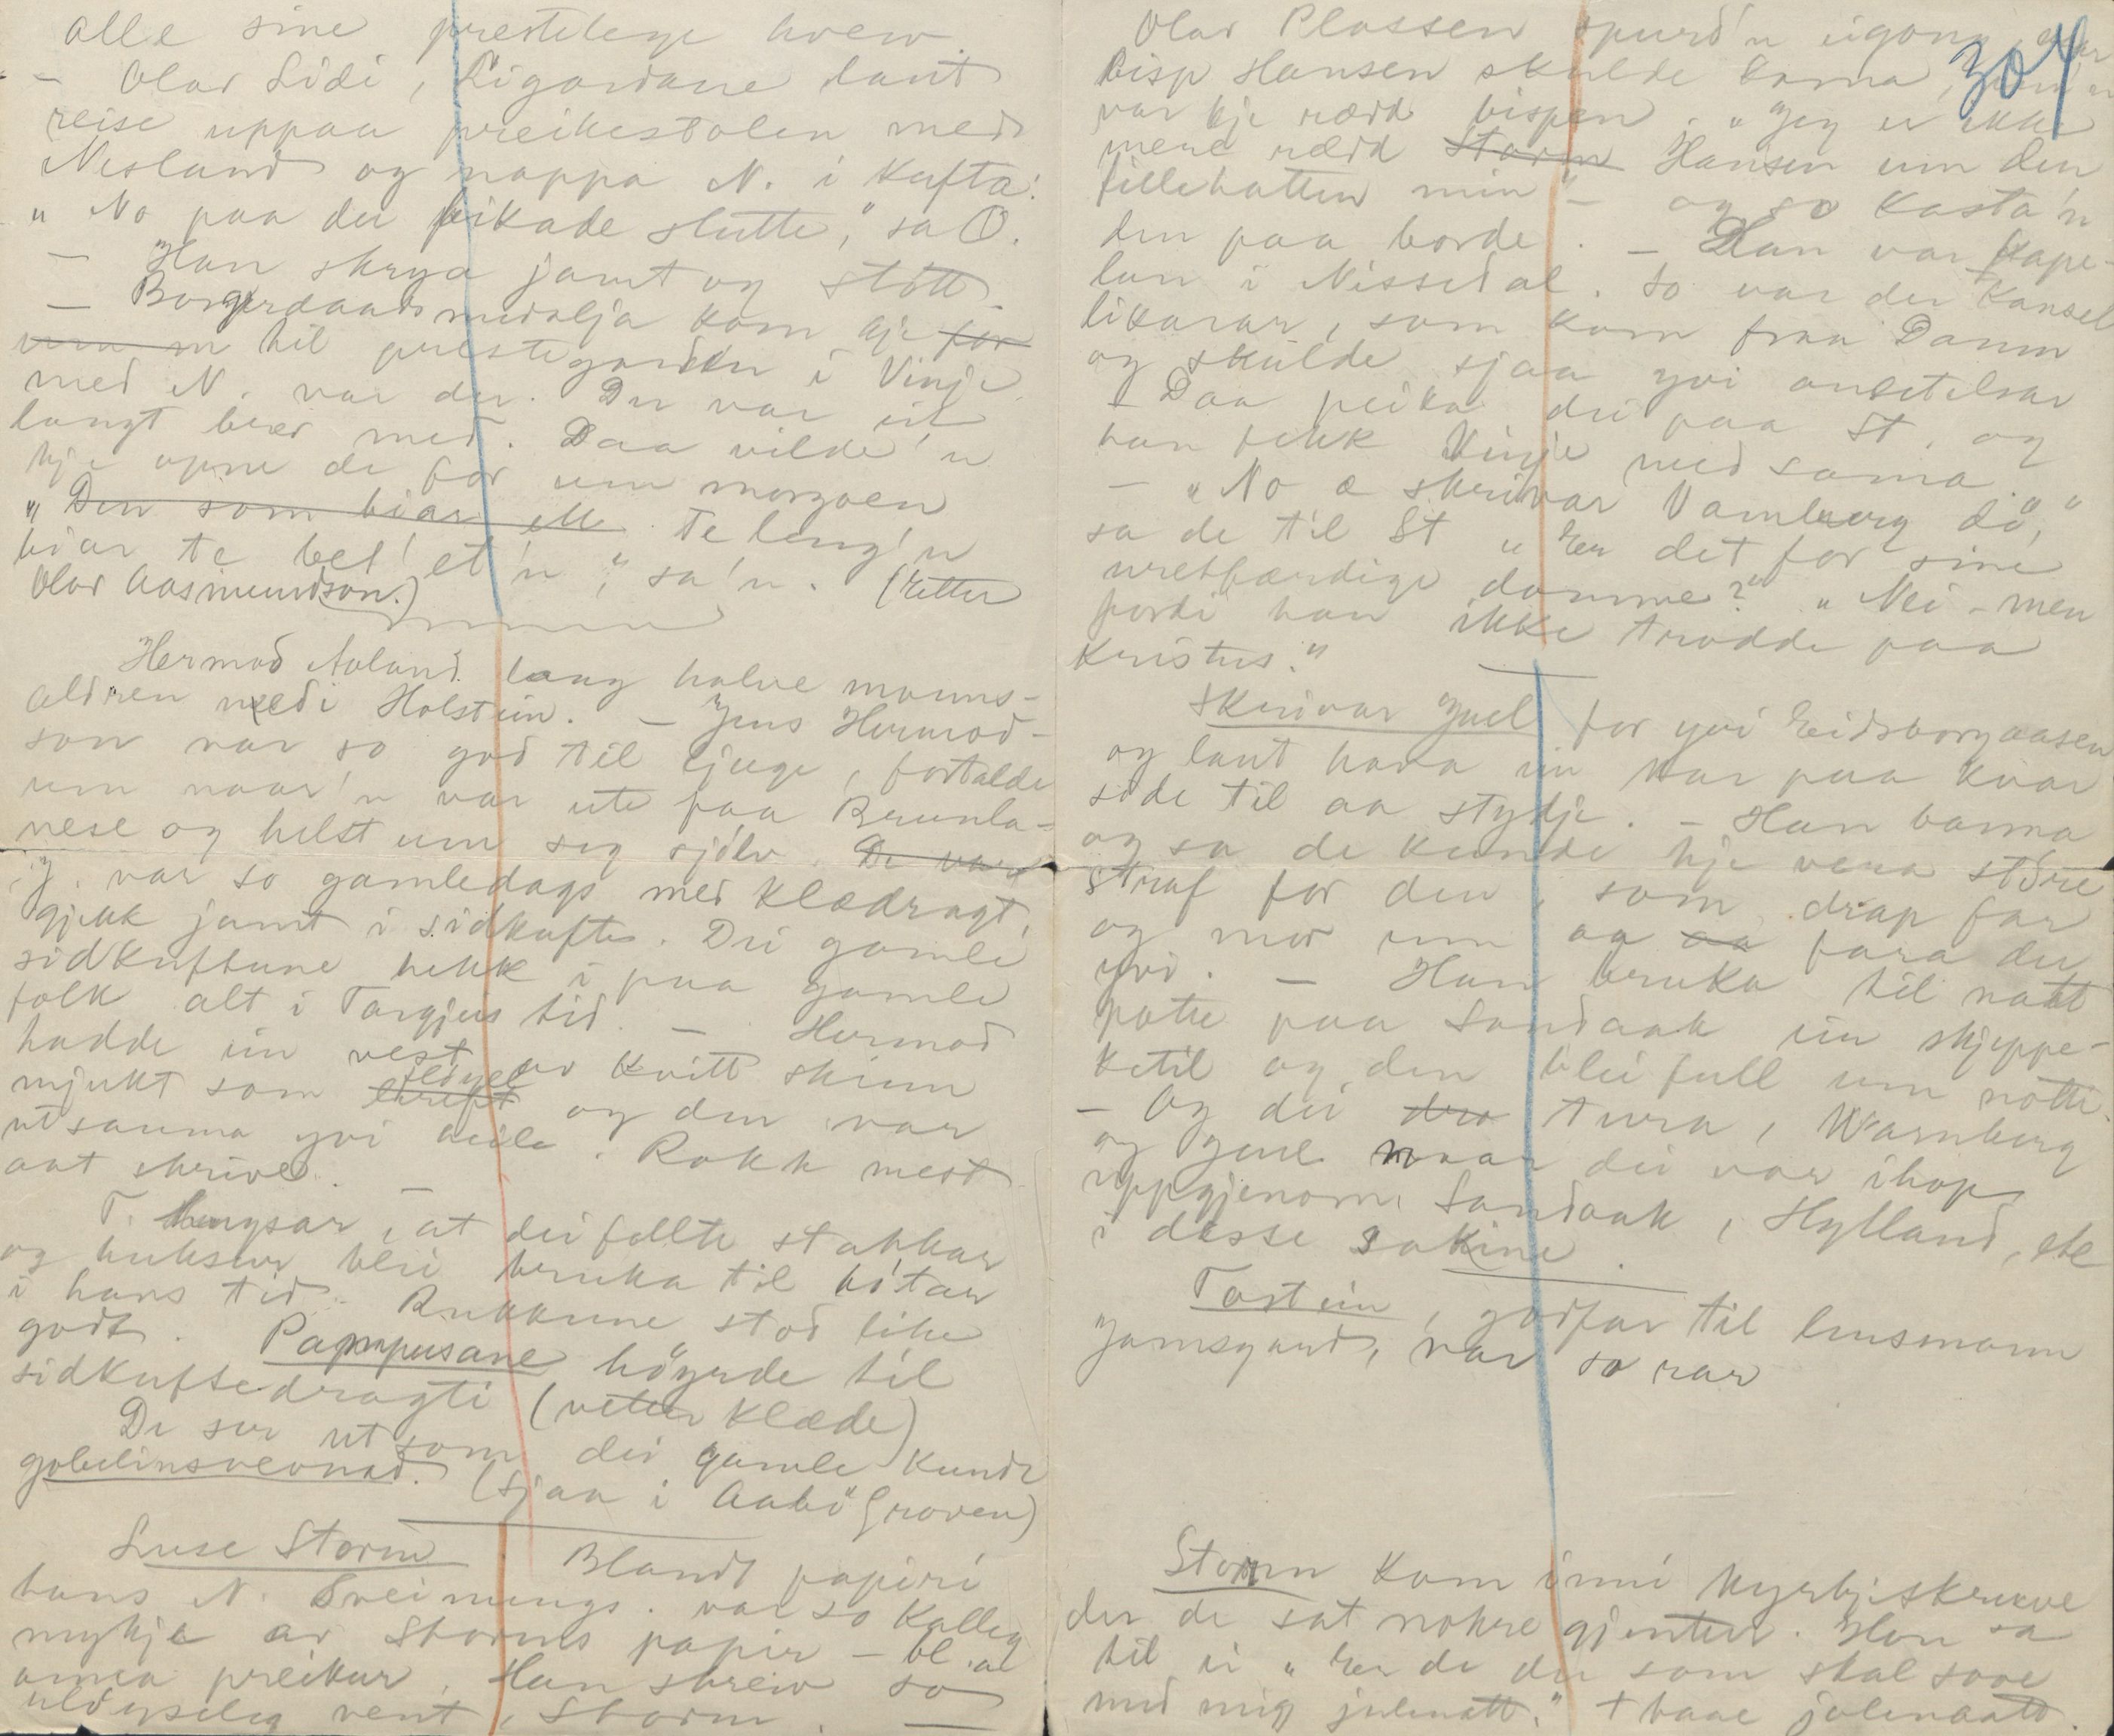 alle sine prestelege hverv.
– Olav Lidi, Ligardane laut
reise uppaa preikestolen med
Nesland og nappa N. i kufta:
"No paa du fikade slutte," sa O.
– Han skrya jamt og stött.
– Borgerdaadsmedalja kom kje for
til prestegarden i Vinje
med N. var der. Der var eit
langt brev med. Daa vilde 'n
kje opne de för um morgoen
"Den som biar ell te leng'n
biar te bel' et 'n," sa 'n. (Etter
Olav Aasmundson.)
Hermod Aaland laag halve manns-
aldren nedi Holstein. – Jens Hermod-
son var so god til ljuge, fortalde
um naar'n var ute paa Brunla-
nese og helst um seg sjölv. De var
J. var so gamledags med klædragt,
gjekk jamt i sidkufte. Dei gamle
sidkuftune hekk i paa gamle
folk alt i Targjeis tid. – Hermod
hadde ein vest av kvitt skinn
mjukt som flöyel og den var
utsauma yvi heile. Rokk mest
aat skrive. –
T. hugsar, at dei fellte stakkar
og bukser blei bruka til bötar
i hans tid. Rukkune stod like
godt. Pampusane höyrde til
sidkuftedragti (vitter klæde)
De ser ut som dei gamle kunde
gobelinsvevnad. (Sjaa i Aabö Groven)
Luse Storm Blandt papiri
hans N. Sveinungs. var so kalleg
mykje av Storms papir – bl. a
anna preikur. Han skreiv so
uldyseleg vent, Storm. –
304
Olav Plassen spurd'n eigong, daa
bisp Hansen skulde koma, um'n
var kje rædd bispen. "Jeg er ikke
mere rædd Storm Hansen um den
fillehatten min" – og so kasta'n
den paa borde. – Han var kape-
lan i Nissedal. So var der kansel
likarar, som kom fraa Danm
og skulde sjaa yvi ansetelsar
– Daa peika dei paa St. og
han fekk Vinje med sama.
– "No æ skrivar Vamberg dö,"
sa de til St "Er det for sine
uretfærdige domme?" "Nei – men
fordi han ikke trodde paa
Kristus."
Skrivar Juel for yvi Eidsborgaasen
og laut hava ein kar paa kvar
side til aa stydje. – Han banna
og sa de kunde kje vera större
straf for den, som drap far
og mor enn aa aa fara der
yvi. – Han bruka til natt
potte paa Sandaak ein skjeppe-
ketil og den blei full um notti.
– Og dei dro tura, Warnberg
og Juel naar dei var ihop
uppgjenom Sandaak, Hylland, etc
i desse sakine.
Tostein, godfar til lensmann
Jamsgard, var so rar
Storm kom inni kyrkjeskruve
der de sat nokre gjentur. Han sa
til ei "Er de du som skal sove
med mig julenatt." + baae julenaatt